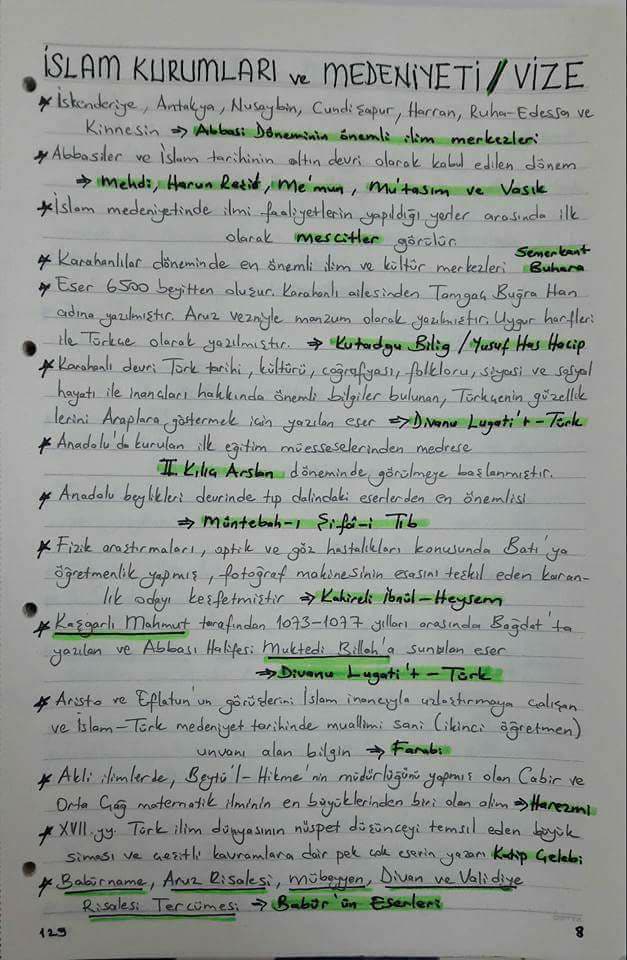 İSLAM KURUMLARI ve MEDENİYETİ / VİZE
* İskenderiye, Antakya, Nusaybin, Cundişapur, Harran, Ruha-Edessa ve
Kinnesin => Abbasi Döneminin önemli ilim merkezleri
* Abbasiler ve İslam tarihinin altın devri olarak kabul edilen dönem
=> Mehdi, Harun Reşit, Me'mun, Mu'tasım ve Vasık
* İslam medeniyetinde ilmi faaliyetlerin yapıldığı yerler arasında ilk
olarak mescitler görülür.
Semerkant
* Karahanlılar döneminde en önemli ilim ve kültür merkezleri Buhara
* Eser 6500 beyitten oluşur. Karahanlı ailesinden Tamgaç Buğra Han
adına yazılmıştır. Aruz vezniyle manzum olarak yazılmıştır. Uygur harfleri
ile Türkçe olarak yazılmıştır. => Kutadgu Bilig / Yusuf Has Hacip
* Karahanlı devri Türk tarihi, kültürü, coğrafyası, folkloru, siyasi ve sosyal
hayatı ile inançları hakkında önemli bilgiler bulunan, Türkçenin güzellik
lerini Araplara göstermek için yazılan eser => Divanu Lugati't-Türk
* Anadolu'da kurulan ilk eğitim müesseselerinden medrese
II. Kılıç Arslan döneminde görülmeye başlanmıştır.
* Anadolu beylikleri devrinde tıp dalındaki eserlerden en önemlisi
=> Müntebah-ı Şifâ-i Tıb
* Fizik araştırmaları, optik ve göz hastalıkları konusunda Batı'ya
öğretmenlik yapmış, fotoğraf makinesinin esasını teşkil eden karan-
lık odayı keşfetmiştir => Kahireli İbnül-Heysem
* Kaşgarlı Mahmut tarafından 1073-1077 yılları arasında Bağdat'ta
yazılan ve Abbasi Halifesi Muktedi Billah'a sunulan eser
=> Divanu Lugati't-Türk
* Aristo ve Eflatun'un görüşlerini İslam inancıyla uzlaştırmaya çalışan
ve İslam-Türk medeniyet tarihinde muallimi sani (ikinci öğretmen)
unvanı alan bilgin => Farabi
* Akli ilimlerde, Beytü'l-Hikme'nin müdürlüğünü yapmış olan Cabir ve
Orta Çağ matematik ilminin en büyüklerinden biri olan alim => Harezmi
* XVII. yy. Türk ilim dünyasının müspet düşünceyi temsil eden büyük
siması ve çeşitli kavramlara dair pek çok eserin yazarı Katip Çelebi
* Babürname, Aruz Risalesi, mübeyyen, Divan ve Validiye
Risalesi Tercümesi => Babür'ün Eserleri
129 8